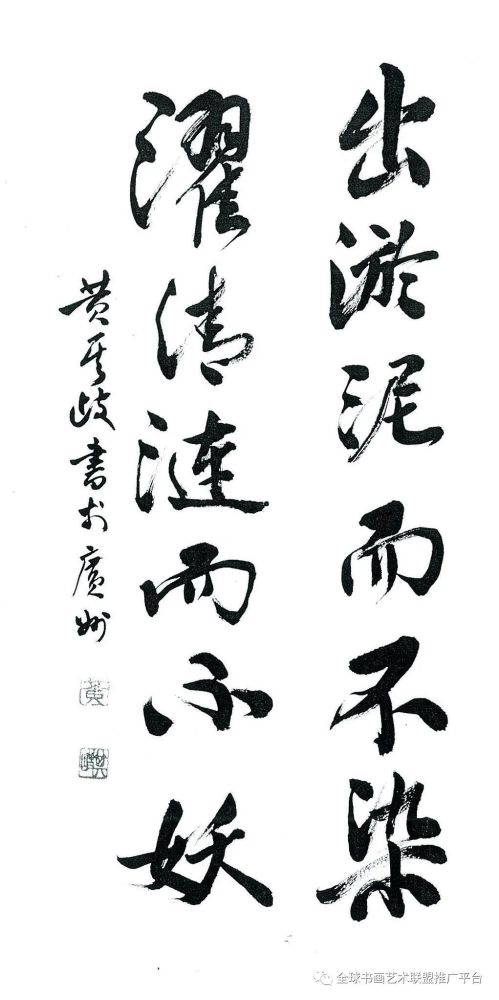 出淤泥而不染
濯清漣而不妖
黄其歧書於廣州
黄
全球书画艺术联盟推广平台